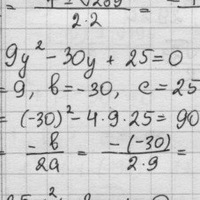 √289
= ——— =
2·2
9y² - 30y + 25 = 0
= 9, b = -30, c = 25
= (-30)² - 4·9·25 = 90
= -b/2a = -(-30)/2·9 =